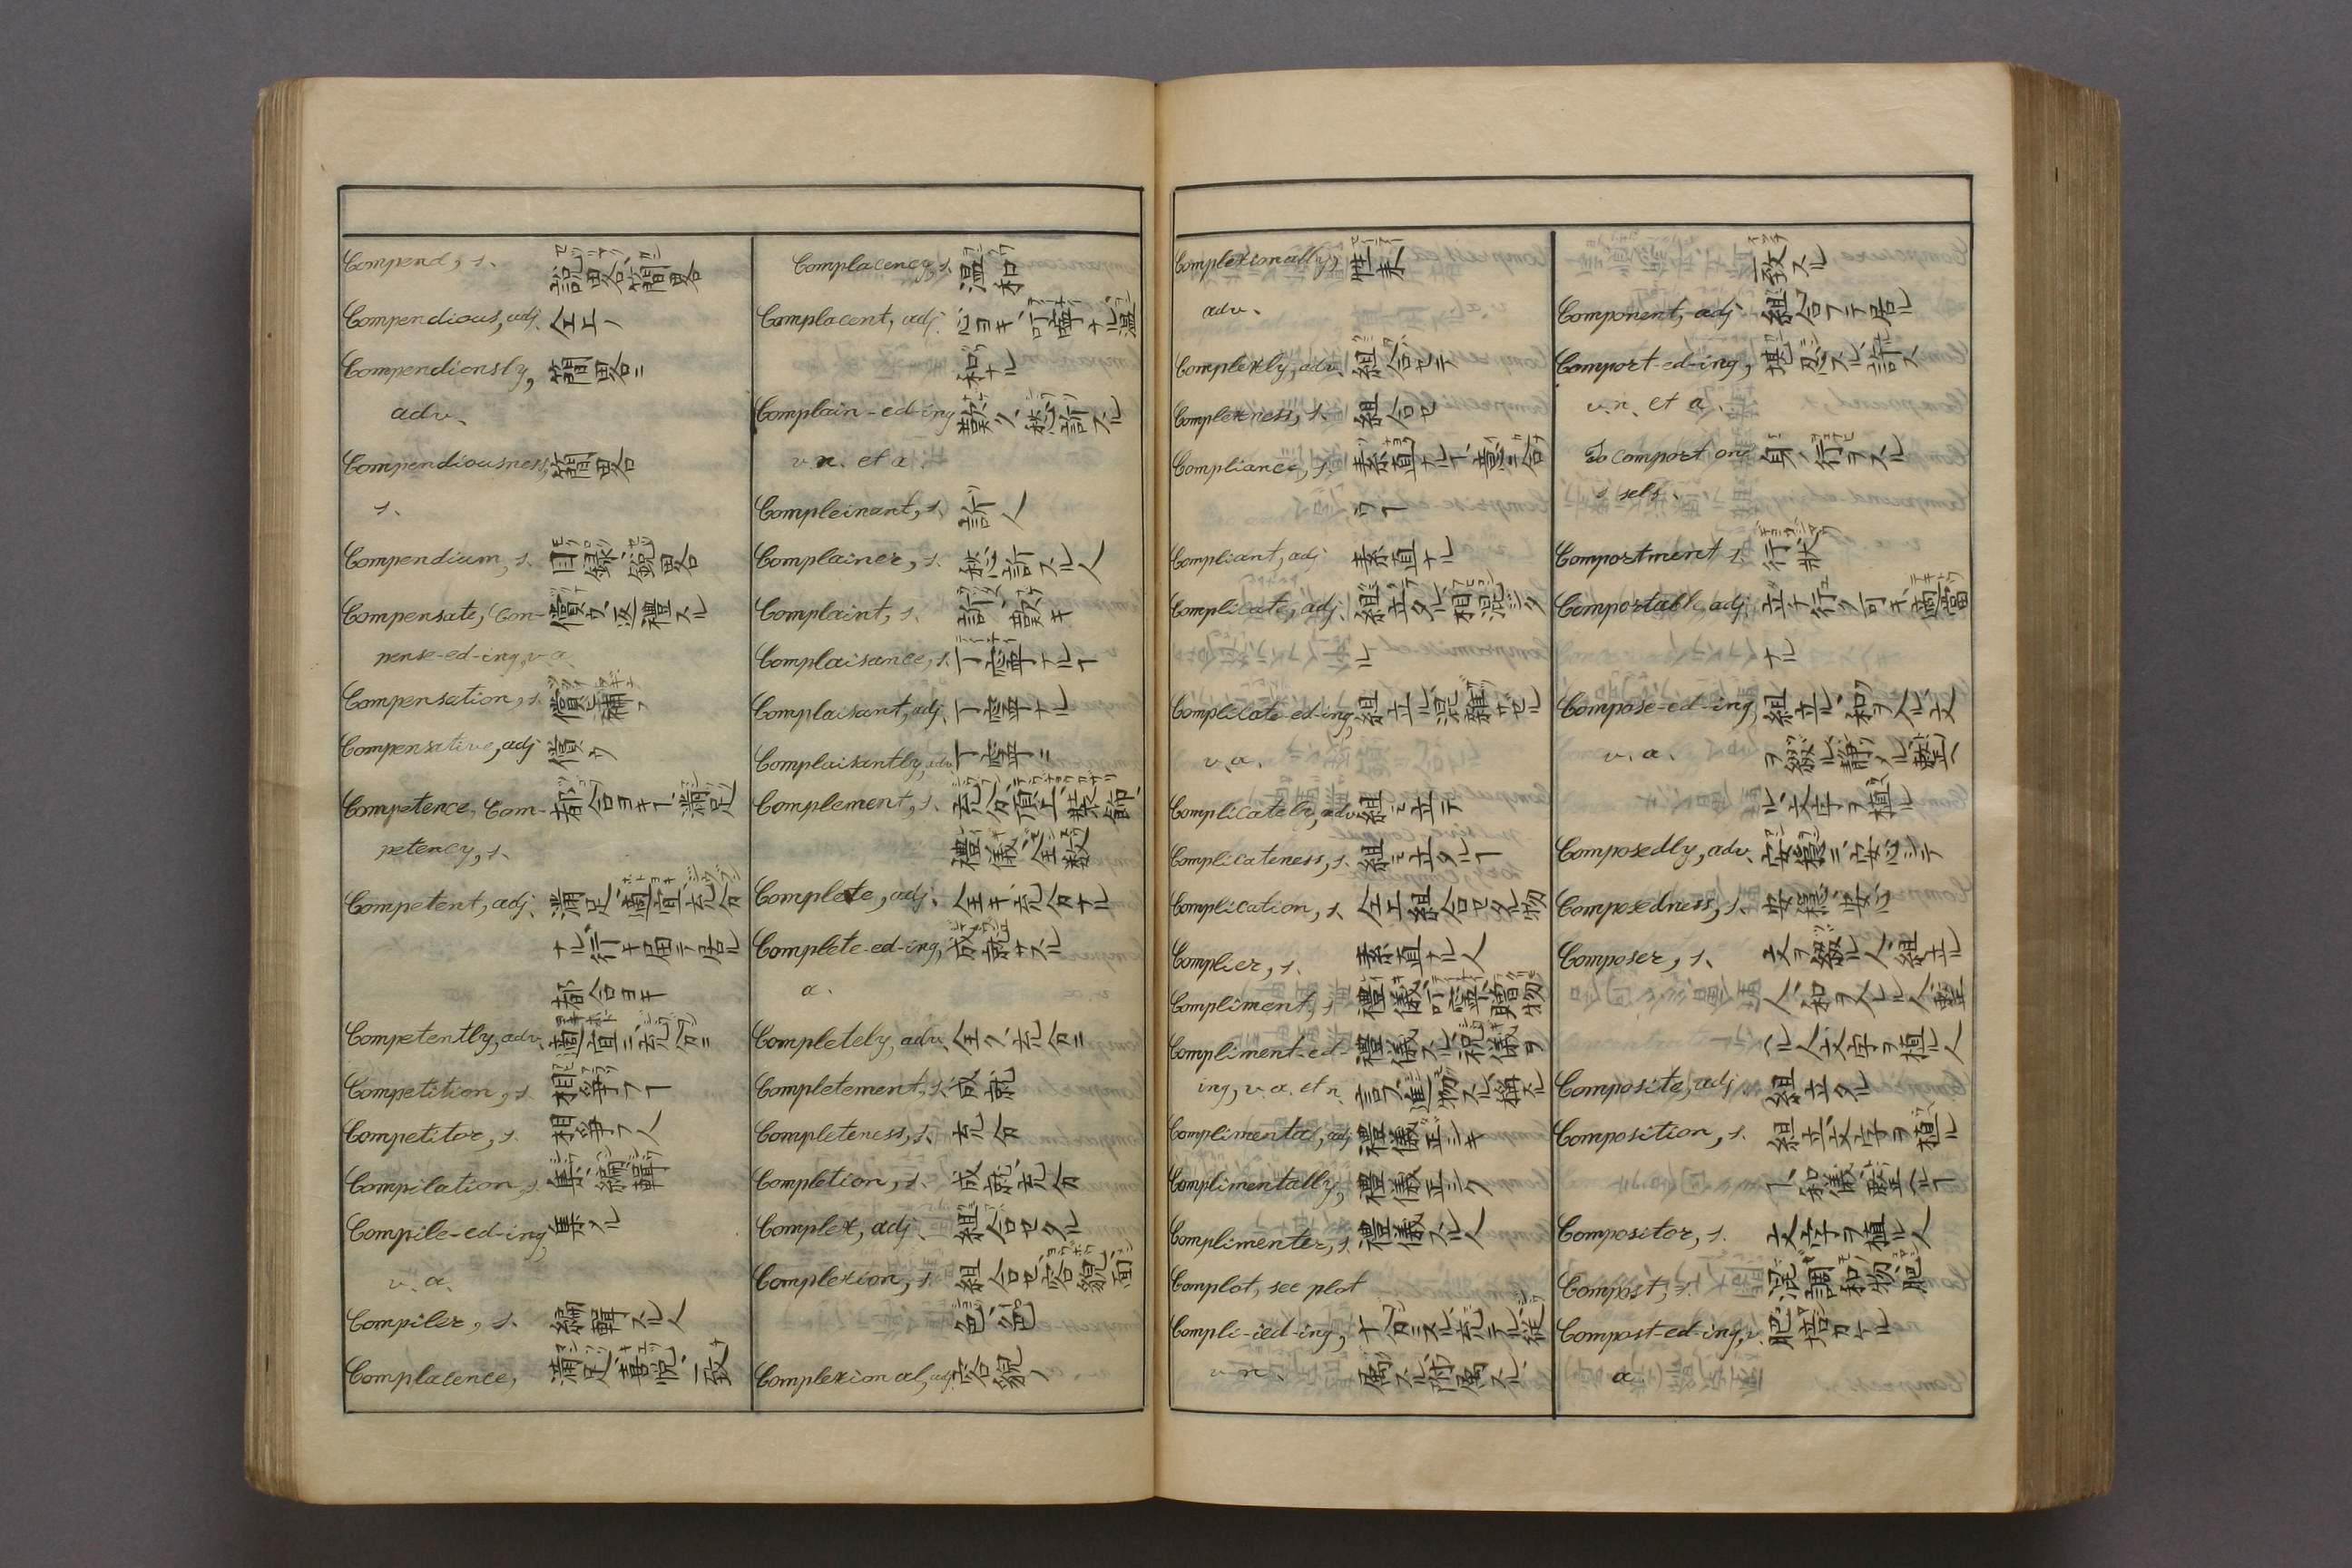 Compend, s. 説畧、簡畧
Compendious, adj. 仝上ノ
Compendiously, 簡畧ニ
adv.
Compendiousness, 簡畧
s.
Compendium, s. 目録、総畧
Compensate, Com- 償フ、返禮スル
pense-ed-ing, v.a.
Compensation, s. 償ヒ、補フ
Compensative, adj. 償フ
Competence, Com- 都合ヨキヿ、満足
petency, s.
Competent, adj. 満足、適宜、充分
ナル、行キ届テ居ル
都合ヨキ
Competently, adv. 適宜ニ、充分ニ
Competition, s. 相爭フヿ
Competitor, s. 相爭フ人
Compilation, s. 集、編輯
Compile-ed-ing, 集ル
v.a.
Compiler, s. 編輯スル人
Complacence, 満足、喜悦、一致
Complacency, s. 温和
Complacent, adj. 心ヨキ、叮嚀ナル、温
和ナル
Complain-ed-ing 歎ク、愁訴スル
v.n. et a.
Compleinant, s. 訴人
Complainer, s. 愁訴スル人
Complaint, s. 訴、歎キ
Complaisance, s. 丁寧ナルヿ
Complaisant, adj. 丁寧ナル
Complaisantly, adv. 丁寧ニ
Complement, s. 充分、頂上、装飾、
禮儀、全数
Complete, adj. 全キ、充分ナル
Complete-ed-ing, 成就サスル
a.
Completely, adv. 全ク、充分ニ
Completement, s. 成就
Completeness, s. 充分
Completion, s. 成就、充分
Complex, adj. 組合セタル
Complexion, s. 組合セ、容貌、面
色、
Complexional, adj. 容貌ノ
Complexionally, 性来
adv.
Complexly, adv. 組合セテ
Complexness, s. 組合セ
Compliance, s. 素直ナルヿ、意ニ合
フヿ
Compliant, adj. 素直ナル
Complicate, adj. 組立タル、相混シタ
ル
Complicate-ed-ing, 組立ル、混雜サセル
v.a.
Complicately, adv. 組ミ立テ
Complicateness, s. 組ミ立タルヿ
Complication, s. 仝上、組合セタル物
Complier, s. 素直ナル人
Compliment, s. 禮儀、叮嚀、贈物
Compliment-ed- 禮儀スル、祝儀ヲ
ing, v.a. et n. 言フ、進物スル
Complimental, adj. 禮儀正シキ
Complimentally, 禮儀正シク
Complimenter, s. 禮儀スル人
Complot, see plot
Compli-ied-ing,
v.n.
一致スル
Component, adj. 組合フテ居ル
Comport-ed-ing, 堪忍スル、許ス
v.n. et a.
To comport one 身ノ行ヲスル
s self.
Comportment s. 行狀
Comportabl, adj. 立チ行ク可キ、適當
ナル
Compose-ed-ing, 組立ル、和ヲ入ル、文
v.a. ヲ綴ル、静メル、整へ
ル、文字ヲ植ル
Composedly, adv. 安穏ニ、安心シテ
Composedness, s. 安穏、安心
Composer, s. 文ヲ綴ル人、組立ル
人、和ヲ入ルヽ人、整
ヘル人、文字ヲ植ル人
Composite, adj. 組立タル
Composition, s. 組立、文字ヲ植ル
ヿ、和儀、整ヘルヿ
Compositor, s. 文字ヲ植ル人
Compost, s. 混調和物、肥
Compost-ed-ing, v. 肥培カケル
a.